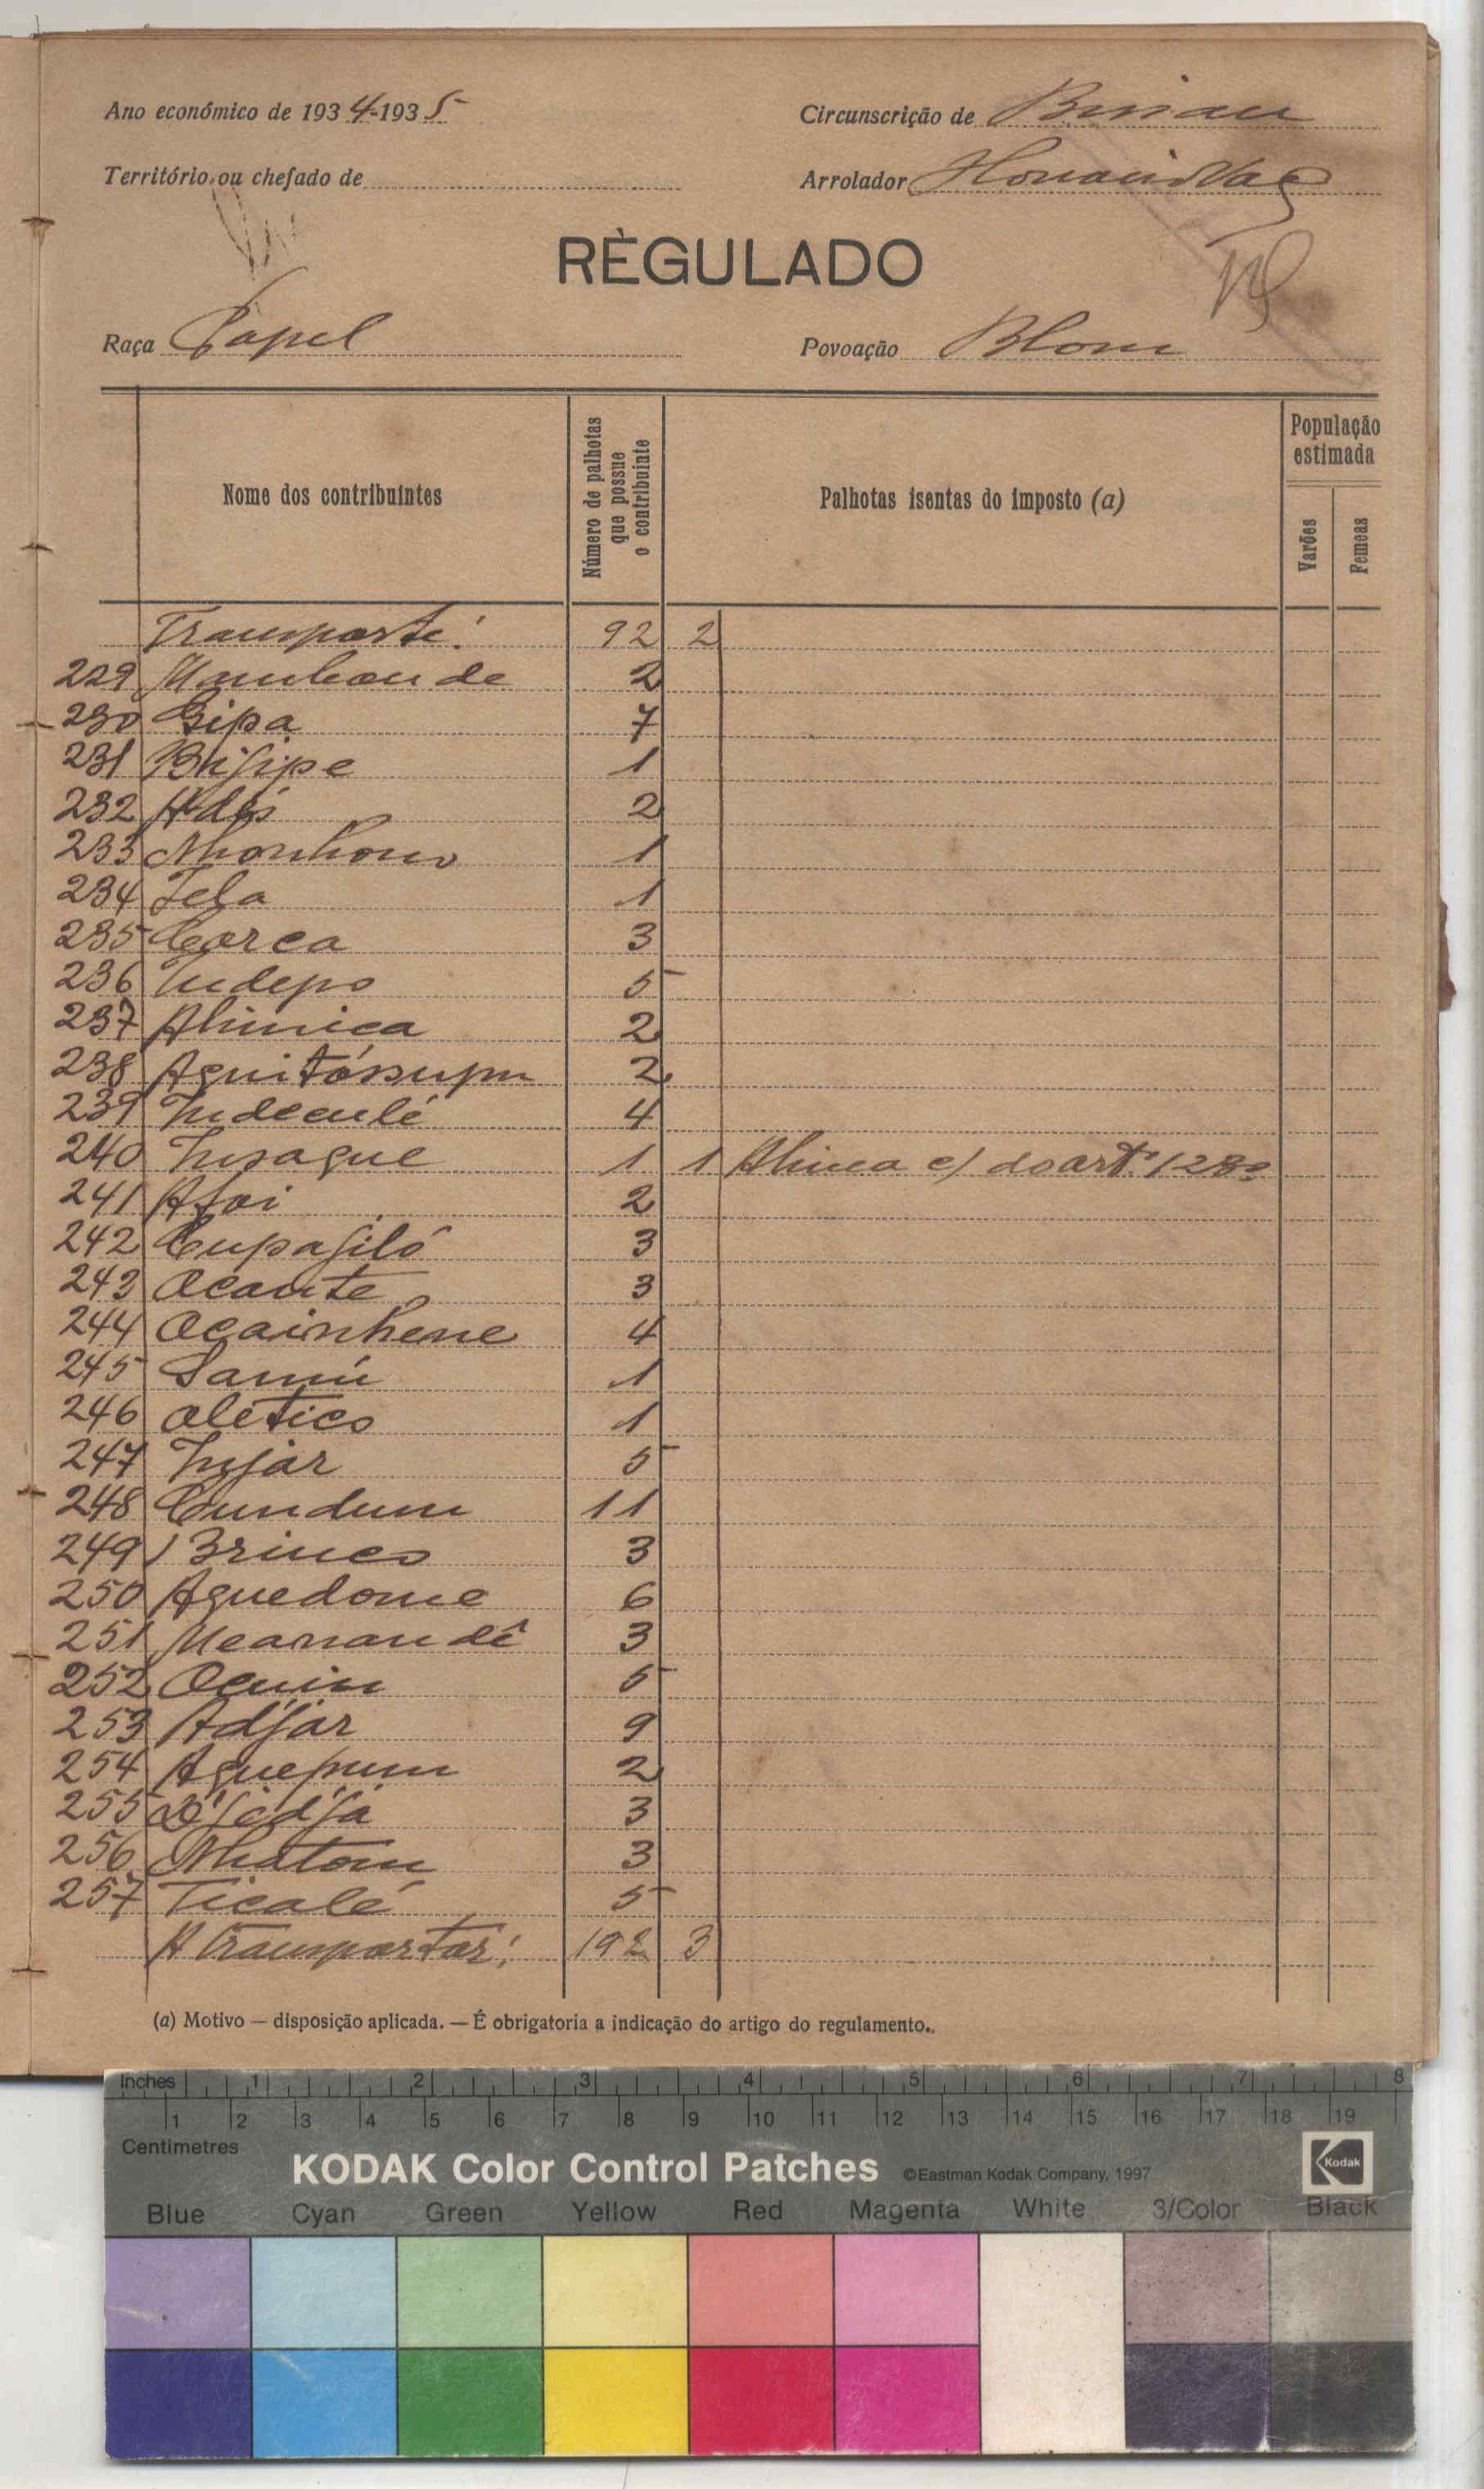 Ano económico de 1934-1935
Circunscrição de Bissau
Território ou chefado de
Arrolador
RÉGULADO
Raça Papel
Povoação Blom
Nome dos contribuintes
Número de palhotas que possue o contribuinte
Palhotas isentas do imposto (a)
População estimada
Varões
Femeas
Transporte: 92 2
229 2
230 Bipa 7
231 Bifipe 1
232 2
233 1
234 Tela 1
235 Carca 3
236 Indepo 5
237 2
238 2
239 Indeculé 4
240 Insague 1 1 c/ do artº 128º
241 Afoi 2
242 Cupafiló 3
243 Ocante 3
244 Ocainhene 4
245 1
246 Oletico 1
247 Injar 5
248 Cundum 11
249 Brinco 3
250 Aguedome 6
251 3
252 Oquin 5
253 Adjar 9
254 Aguepum 2
255 3
256 Nhatom 3
257 Ticalé 5
A transportar: 192 3
(a) Motivo — disposição aplicada. — É obrigatoria a indicação do artigo do regulamento..
Inches 1 2 3 4 5 6 7 8
1 2 3 4 5 6 7 8 9 10 11 12 13 14 15 16 17 18 19
Centimetres
KODAK Color Control Patches ©Eastman Kodak Company, 1997 Kodak
Blue Cyan Green Yellow Red Magenta White 3/Color Black